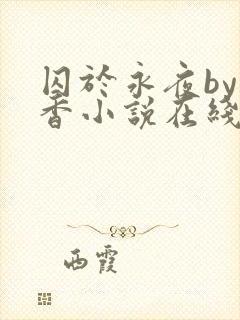 囚於永夜by
香小說在綫
西霞